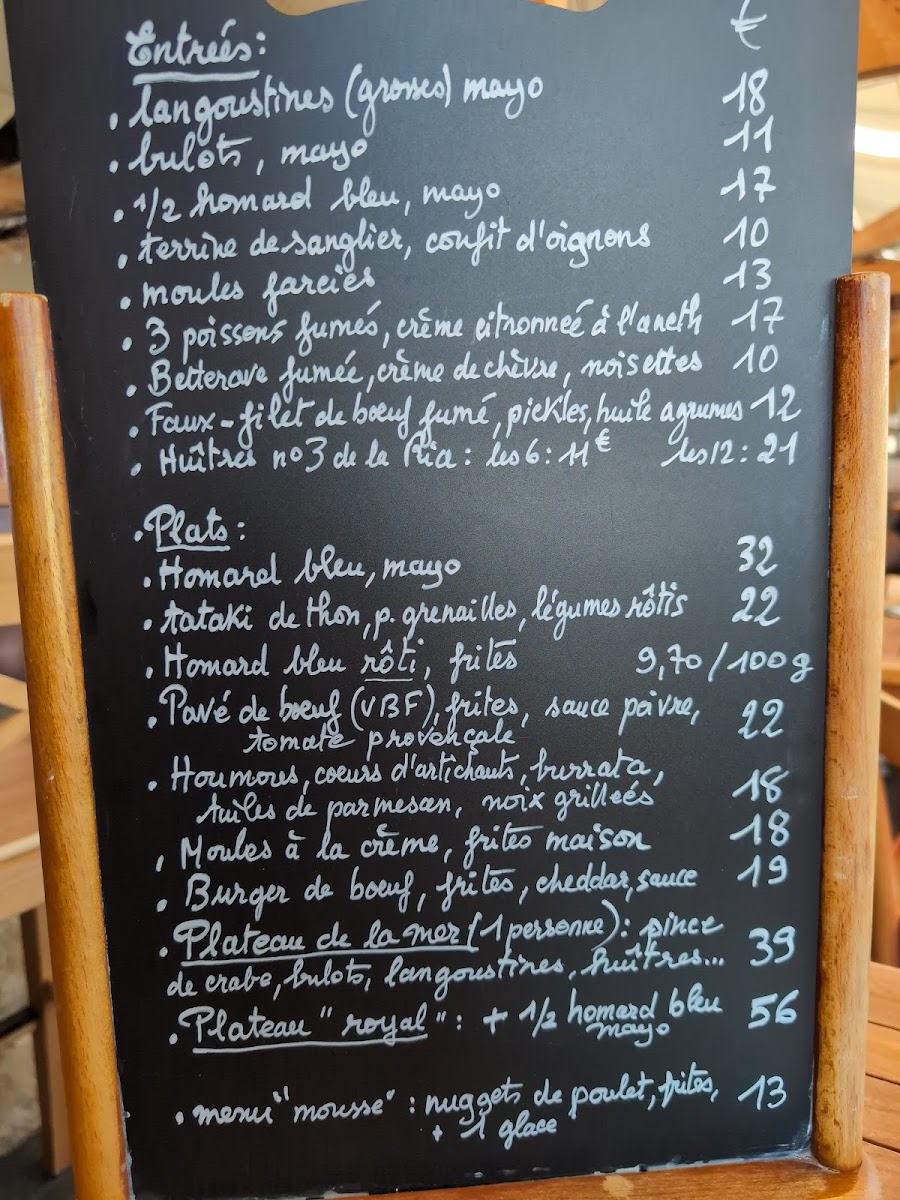 Entrées: €
. langoustines (grosses) mayo 18
. bulots, mayo 11
. 1/2 homard bleu, mayo 17
. terrine de sanglier, confit d'oignons 10
. moules farcies 13
. 3 poissons fumés, crème citronneé à l'aneth 17
. Betterave fumée, crème de chèvre, noisettes 10
. Faux-filet de bœuf fumé, pickles, huile agrumes 12
. Huîtres n°3 de la Ria : les 6 : 11€ les 12 : 21
. Plats :
. Homard bleu, mayo 32
. tataki de thon, p. grenailles, légumes rôtis 22
. Homard bleu rôti, frites 9,70/100g
. Pavé de bœuf (VBF), frites, sauce poivre, 22
tomate provençale
. Houmous, coeurs d'artichauts, burrata,
tuiles de parmesan, noix grilleés 18
. Moules à la crème, frites maison 18
. Burger de bœuf, frites, cheddar, sauce 19
. Plateau de la mer (1 personne) : pince
de crabe, bulots, langoustines, huîtres... 39
. Plateau "royal" : + 1/2 homard bleu 56
mayo
. menu "mousse" : nuggets de poulet, frites, 13
+ 1 glace